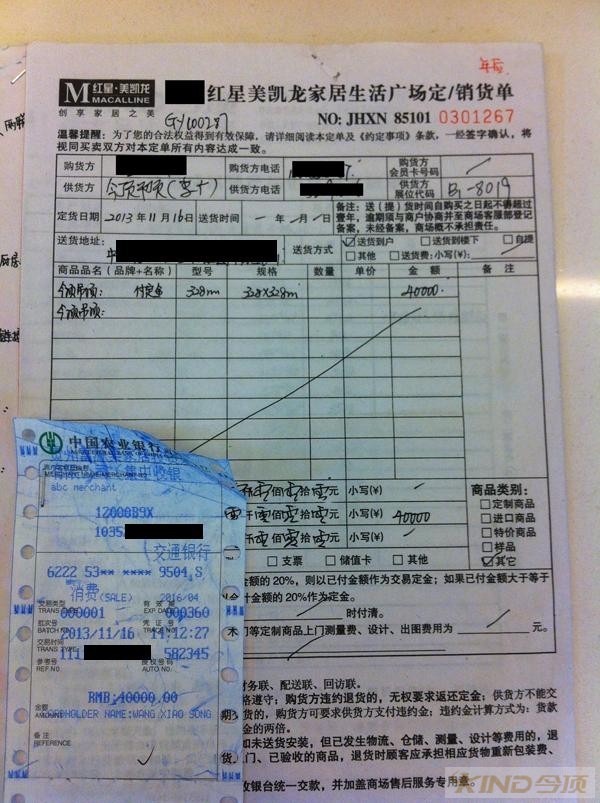 年后
M 红星·美凯龙
MACALLINE
创享家居之美
红星美凯龙家居生活广场定/销货单
NO: JHXN 85101 0301267
GY100287
温馨提醒：为了您的合法权益得到有效保障，请详细阅读本定单及《约定事项》条款，一经签字确认，将
视同买卖双方对本定单所有内容达成一致。
购货方 购货方电话 购货方会员卡号码
供货方 今顶吊顶 供货方电话 供货方展位代码 B1-8019
定货日期 2013年11月16日 送货时间 年 月 日
备注：送（提）货时间自购买之日起不得超过
壹年，逾期须与商户协商并至商场客服部登记
备案，未经备案，商场概不承担责任。
送货地址： 送货方式 送货到户 送货到楼下 自提
其他 送货费：小写(¥)：
商品品名（品牌+名称） 型号 规格 数量 单价 金额 备注
今顶吊顶： 付定金 328mm 328X328mm 40000.
今顶吊顶：
仟零佰零拾零元 小写(¥)
零仟零佰零拾零元 小写(¥) 40000
仟零佰零拾零元 小写(¥)
商品类别：
定制商品
进口商品
特价商品
样品
其它
支票 储值卡 其他
金额的20%，则以已付金额作为交易定金；如果已付金额大于等于
计金额的20%作为定金。
时付清。
门等定制商品上门测量费、设计、出图费用为 元。
财务联、配送联、回访联。
格遵守；购货方违约退货的，无权要求返还定金；供货方不能交
的，购货方可要求供货方支付违约金；违约金计算方式为：货款
金的两倍。
如未送货安装，但已发生物流、仓储、测量、设计等费用的，退
门、已验收的商品，退货时顾客应承担相应货物重新包装费、
收银台统一交款，并加盖商场售后服务专用章。
中国农业银行
集中收银
abc merchant
12000B9X
1035
交通银行
6222 53** **** 9504 S
消费(SALE) 2016/04
交易类型 有效期
TRANS TYPE EXP DATE
000001 000360
批次号 凭证号
BATCH NO
2013/11/16 17:12:27
交易时间
111 582345
参考号 授权号码
REF.NO. AUTO NO.
RMB:40000.00
金额
AMOUNT
CARDHOLDER NAME:WANG XIAO SONG
备注
REFERENCE
KIND今顶